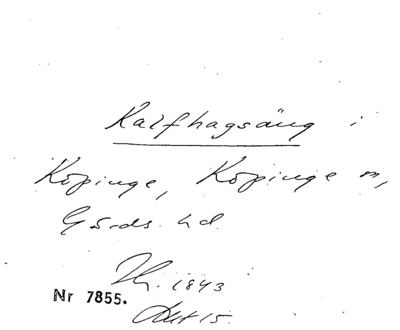 Kalfhagsäng i
Köpinge, Köpinge sn,
Gärds hd.
1843
Nr 7855.
Akt 15.